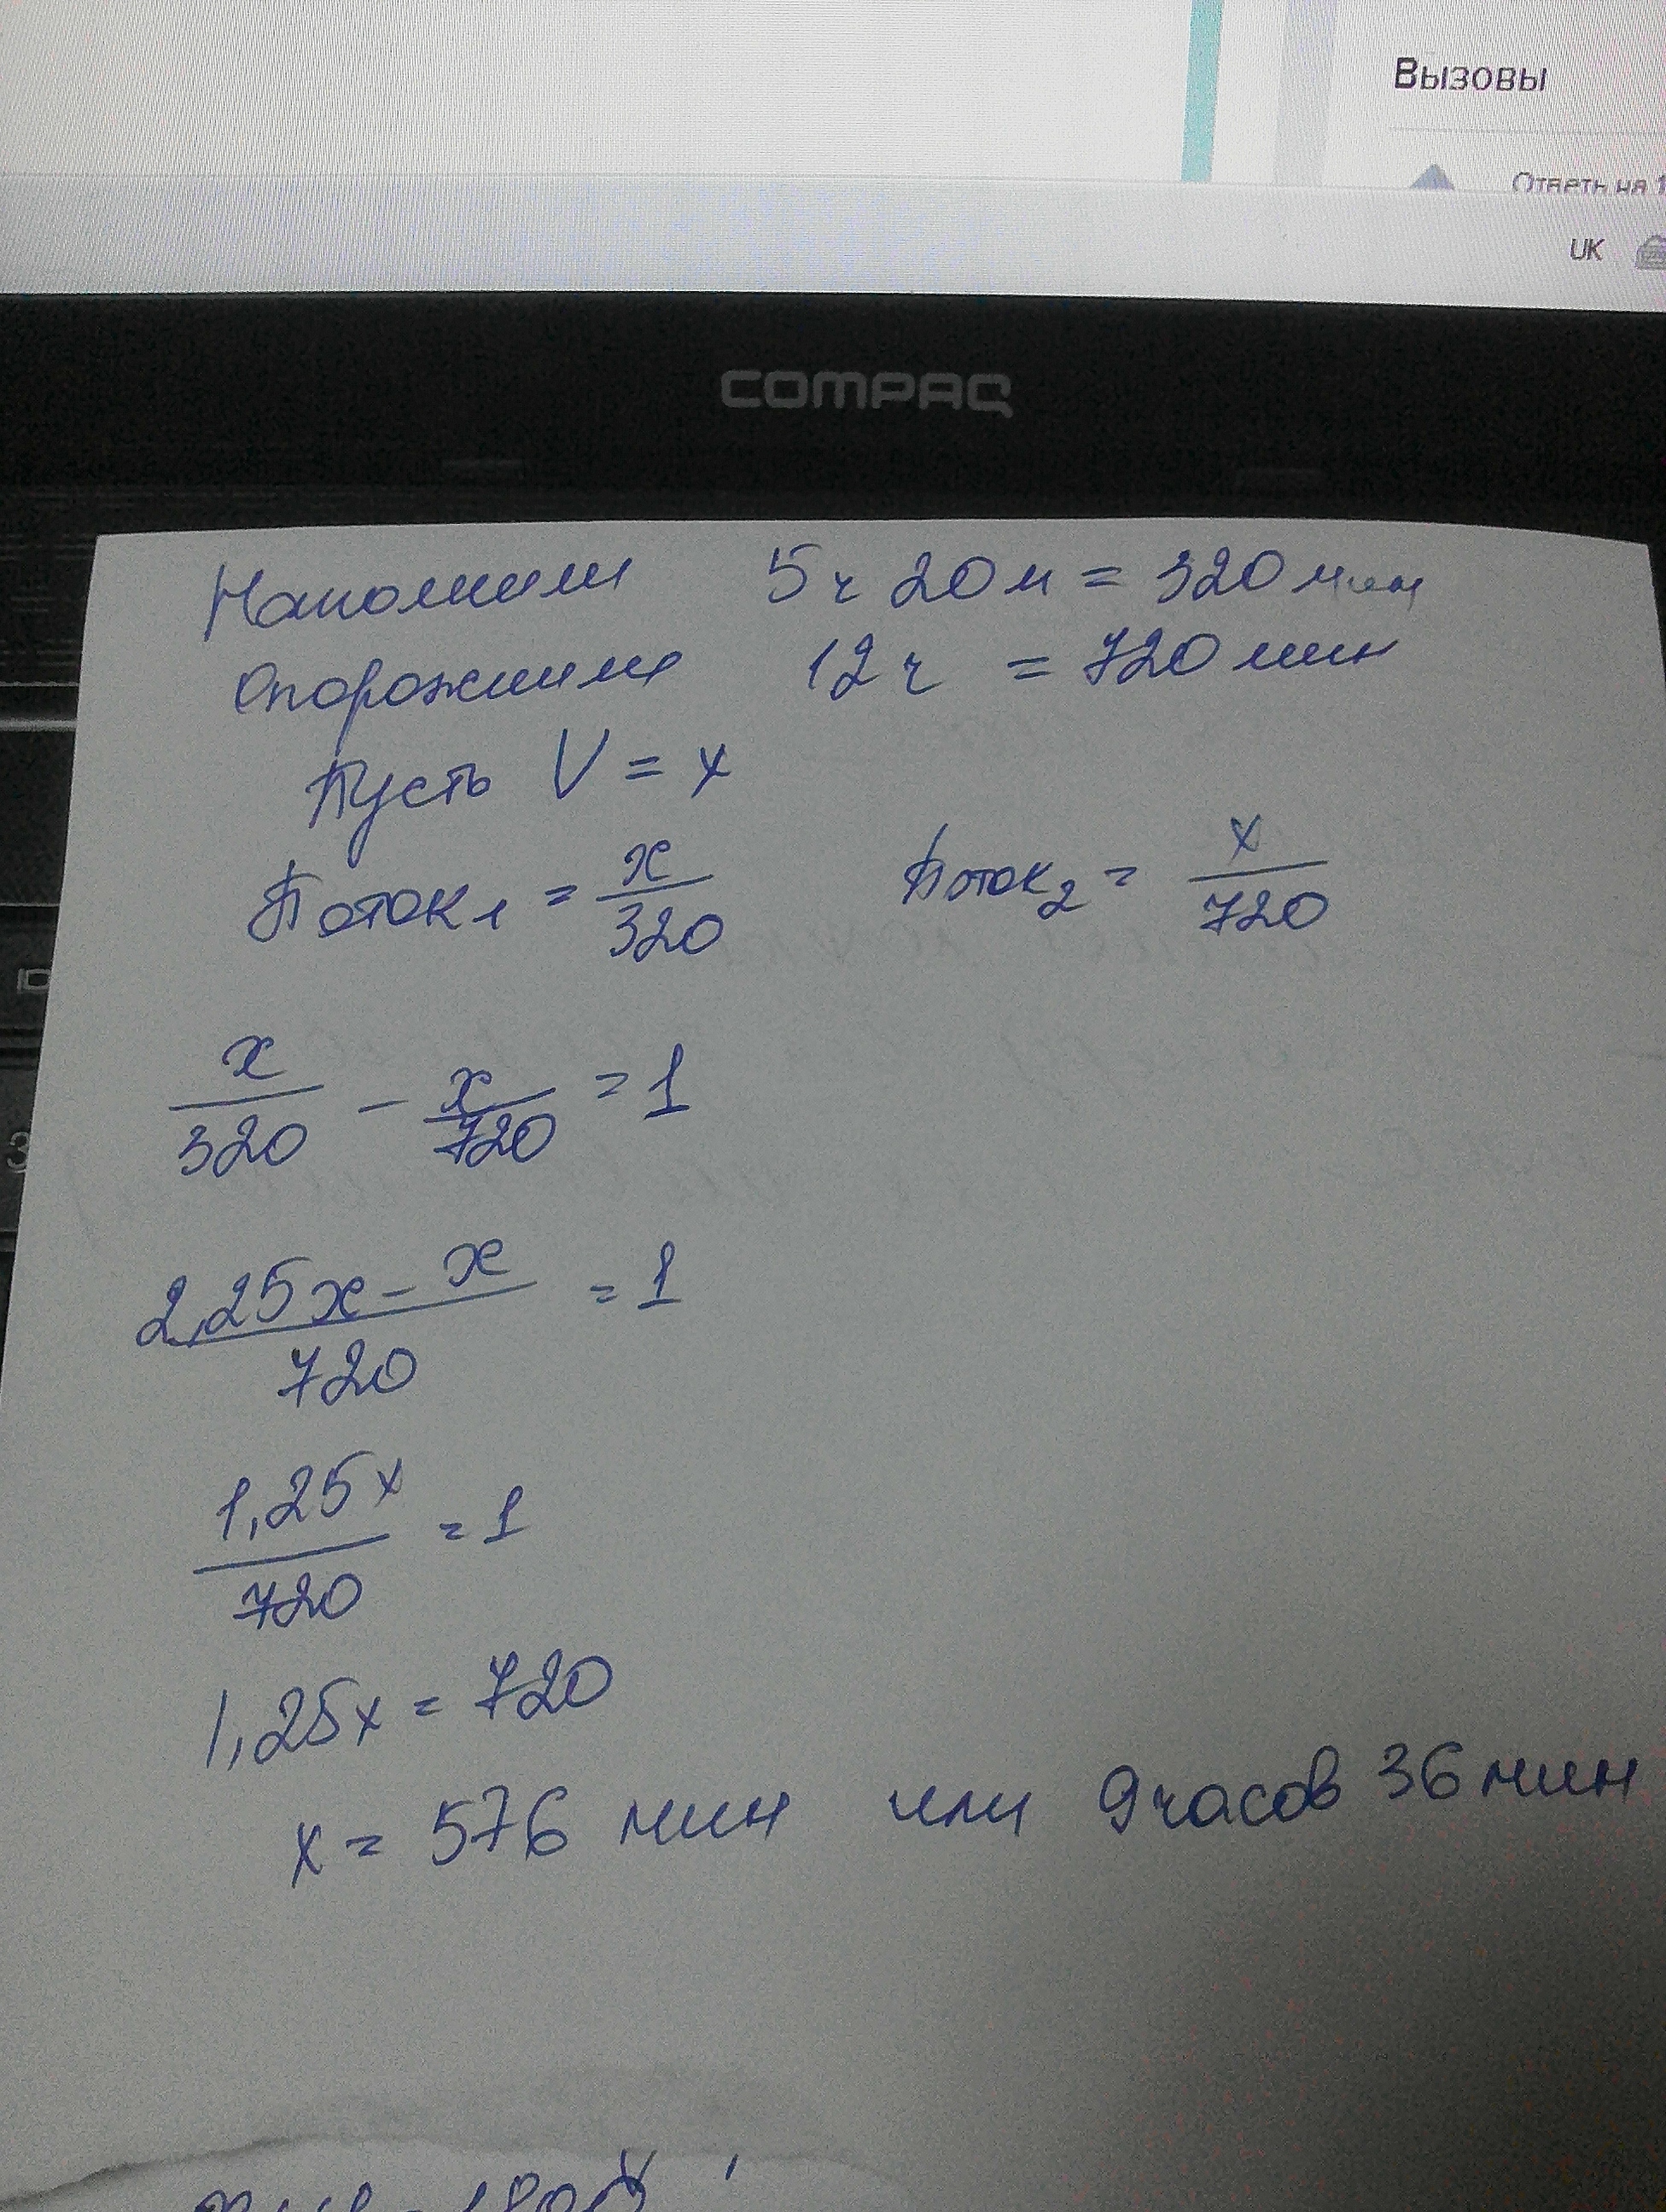 Вызовы
Ответь на 1
UK
COMPAQ
Наполнили 5ч 20м = 320 мин
Опорожнили 12ч = 720 мин
Пусть V = x
Поток₁ = x/320 Поток₂ = x/720
x/320 - x/720 = 1
2,25x - x/720 = 1
1,25x/720 = 1
1,25x = 720
x = 576 мин или 9 часов 36 мин